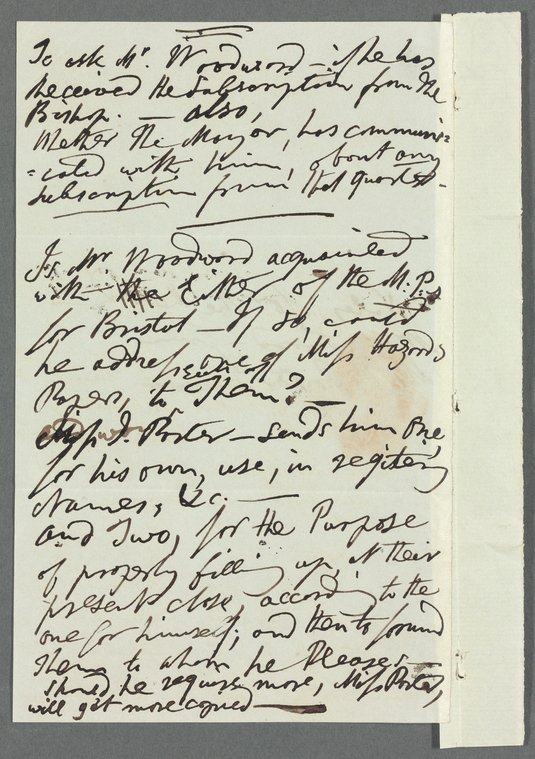 To ask Mr. Woodward – if he has
received the Subscription from the
Bishop. — also,
Whether the Mayor, has communi=
=cated with him, about any
subscription from that quarter.
Is Mr Woodward acquainted
with the Either of the M.Ps
for Bristol – If so, could
he address one of Miss Hazards
Papers, to Them? —
Miss J. Porter – sends him one,
for his own, use, in registering
Names, &c. —
and Two, for the Purpose
of properly filling up, at their
present close, according to the
one for himself; and then to forward
Them to whom he Pleases —
should he require more, Miss Porter,
will get more copied —